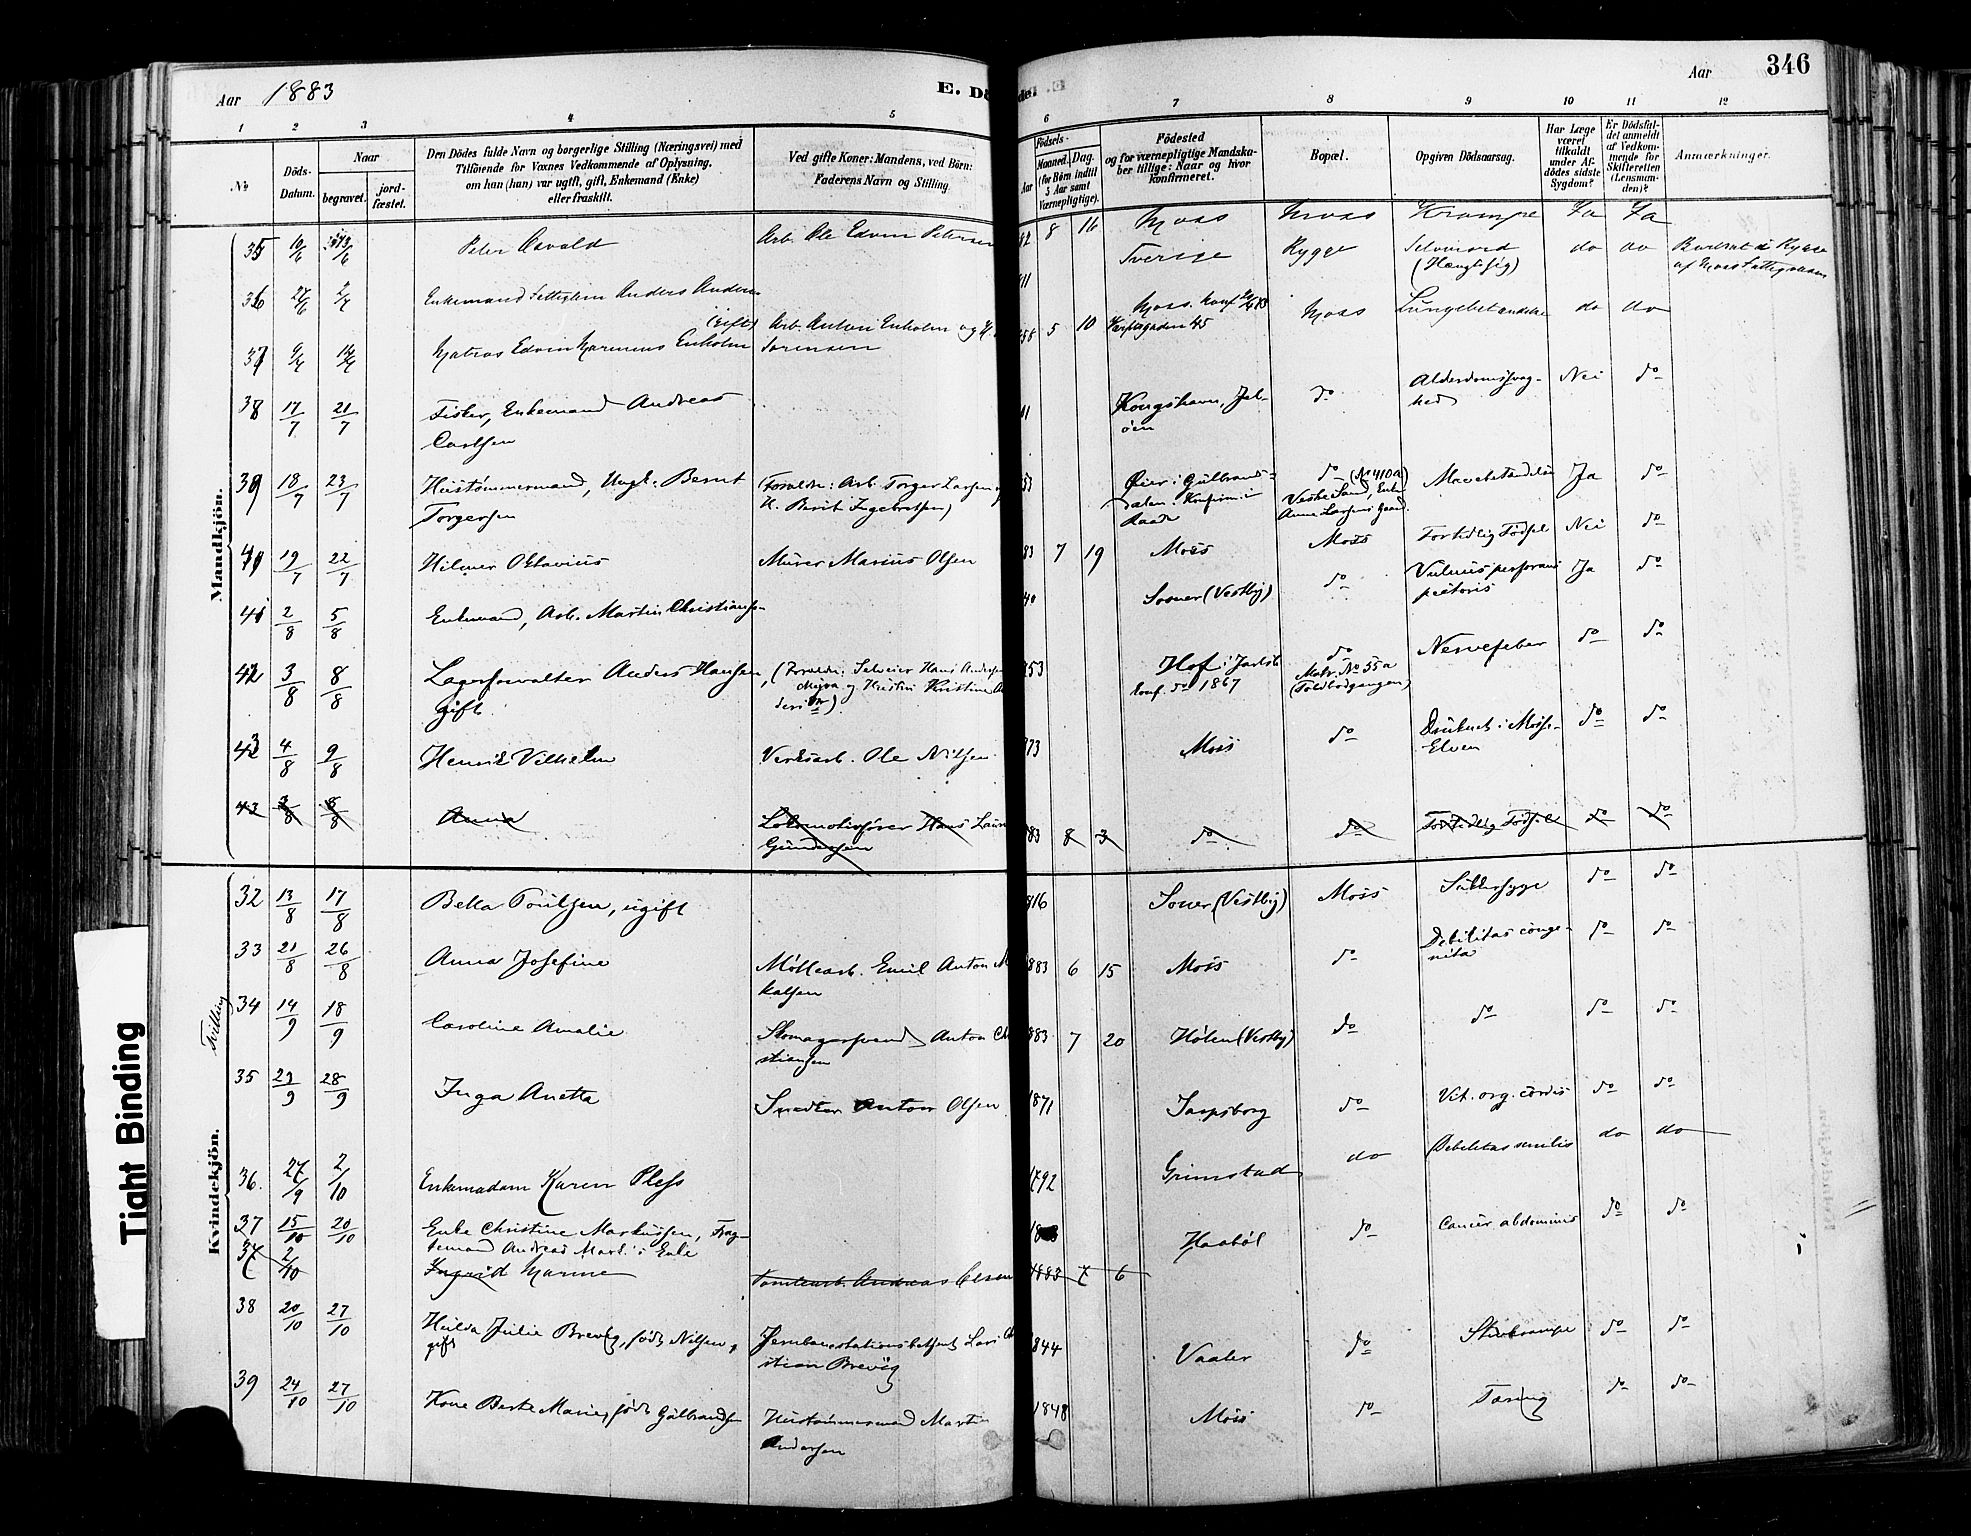 Aar 1883
E. Dö
de.
Aar
346
1 2 3 4 5 6 7 8 9 10 11 12
No
Döds-
Datum.
Naar
begravet.
jord-
fæstet.
Den Dödes fulde Navn og borgerlige Stilling (Næringsvei) med
Tilföiende for Voxnes Vedkommende af Oplysning,
om han (hun) var ugift, gift, Enkemand (Enke)
eller fraskilt.
Ved gifte Koner: Mandens, ved Börn:
Faderens Navn og Stilling.
Födsels-
Aar
Maaned. Dag.
(for Börn indtil
5 Aar samt
Værnepligtige).
Födested
og for værnepligtige Mandska-
ber tillige: Naar og hvor
konfirmeret.
Bopæl.
Opgiven Dödsaarsag.
Har Læge
været
tilkaldt
under Af-
dödes sidste
Sygdom?
Er Dödsfal-
det anmeldt
af Vedkom-
mende for
Skifteretten
(Lensman-
den)?
Anmærkninger.
Mandkjön.
35 10/6 Peter Osvald Arb. Ole Edvin Petersen 82 8 16 Moss Moss Krampe Ja Ja
36 27/6 2/7 Enkemand Fattiglem Anders Anders 11 Sverige Rygge Selvmord
(Hængt sig) do do Bortsat i Rygge
af Moss Fattigvæsen
37 9/7 14/7 Matros Edvin Marinius Enholm
(Gift) Arb. Anton Enholm og H.
Sorensen 58 5 10 Moss. Konf. 73 Moss Lungebetændelse do do
38 17/7 21/7 Fisker, Enkemand Andreas
Carlsen 11 Kongshavn, Jel-
öen do Alderdomssvag-
hed Nei do
39 18/7 23/7 Hustömmermand, Ungk. Bernt
Torgersen (Foræld: Arb. Torger Larsen og
H. Berit Ingebretsen) 53 Öier i Gulbrands-
dalen. Konfirm. i
Raade do (No 410a)
Verket Sand, Enke
Anne Larsens Gaard. Mavebetændelse Ja do
40 19/7 22/7 Hilmer Oktavius Murer Marius Olsen 83 7 19 Moss Moss For tidlig Födsel Nei do
41 2/8 5/8 Enkemand, Arb. Martin Christians- 40 Soner (Vestby) do Vulnus perforans
pectoris Ja do
42 3/8 8/8 Lagerforvalter Anders Hansen,
gift. (Foræld: Selveier Hans Andersen
og Hustru Kristine An
dersdr) 853 Hof i Jarlsb.
konf. do 1867 do
Matr. No 55a
(Toldbodgangen) Nervefeber do do
43 4/8 9/8 Henrik Vilhelm Verksarb. Ole Nilsen 873 Moss do Druknet i Mosse-
Elven do do
43 3/8 8/8 Anna Lokomotivförer Hans Laur
Gundersen 883 8 3 do do For tidlig Födsel do do
Kvindekjön.
32 13/8 17/8 Bella Poulsen, ugift 816 Soner (Vestby) Moss Sukkersyge do do
33 21/8 26/8 Anna Josefine Möllearb. Emil Anton Mi
kalsen 883 6 15 Moss do Debilitas conge-
nita do do
Tvilling 34 14/9 18/9 Caroline Amalie Skomagersvend Anton Ch
stiansen 883 7 20 Hölen (Vestby) do do do do
35 23/9 28/9 Inga Anetta Snedker Anton Olsen 1871 Sarpsborg do Vit. org. cordis do do
36. 27/9 2/10 Enkemadam Karen Pless 1792 Grimstad do Debilitas senilis do do
37 15/10 20/10 Enke Christine Markussen, Frag-
temand Andreas Mark.'s Enke 18 Haaböl do Cancer abdominis do do
37 2/10 Ingrid Marine Tomtearb. Andreas Olsen 1883 7 6
38 20/10 27/10 Hulda Julie Brevig, födt Nilsen,
gift Jernbanestationsbetjent Lars Ch
stian Brevig 1844 Vaaler do Stivkrampe do do
39 24/10 27/10 Kone Berte Marie, födt Gulbrandsen Hustömmermand Martin
Andersen 1848 Moss do Tæring do do
Tight Binding